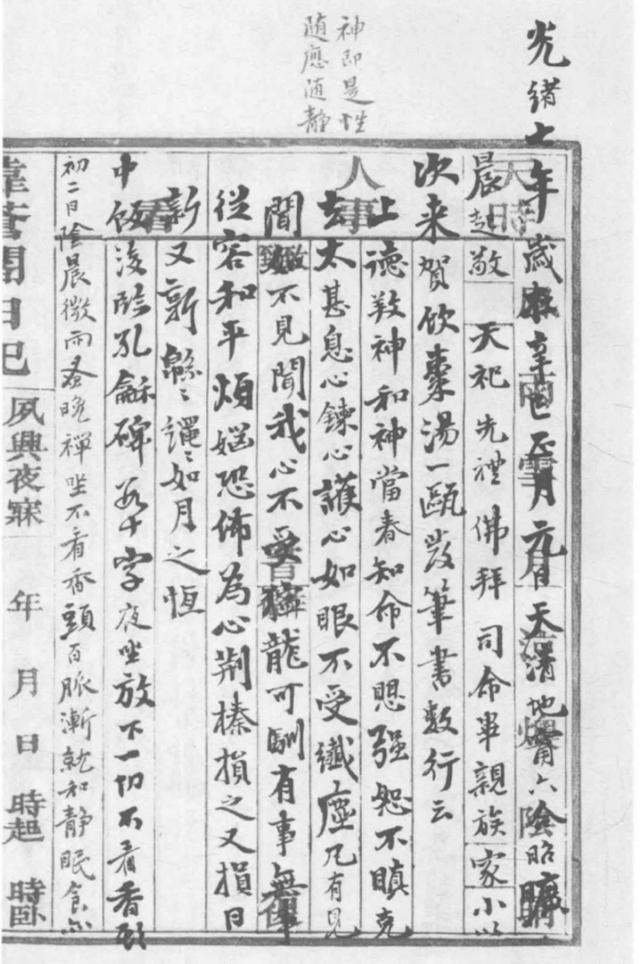 神即是性
随應随静
光緒七年歲在辛巳正月元日天清地甯六陰昭曠
晨起敬天祀先禮佛拜司命畢親族家小以
次来賀飲棗湯一甌發筆書數行云
上德敦神和神當春知命不惥强恕不瞋克
去太甚息心鍊心護心如眼不受纖塵凡有見
聞如不見聞我心不受獰龍可馴有事無事
從容和平煩惱恐怖為心荆榛損之又損日
新又新緜緜繩繩如月之恆
中飯後臨孔龢碑卅字夜坐放下一切不看香頭
初二日陰晨微雨蚤晚禪坐不看香頭百脈漸就和静眠食亦
日記
夙興夜寐 年 月 日 時起 時卧
天時
人事